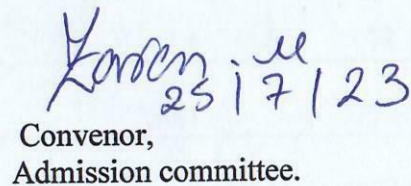 25/7/23
Convenor,
Admission committee.